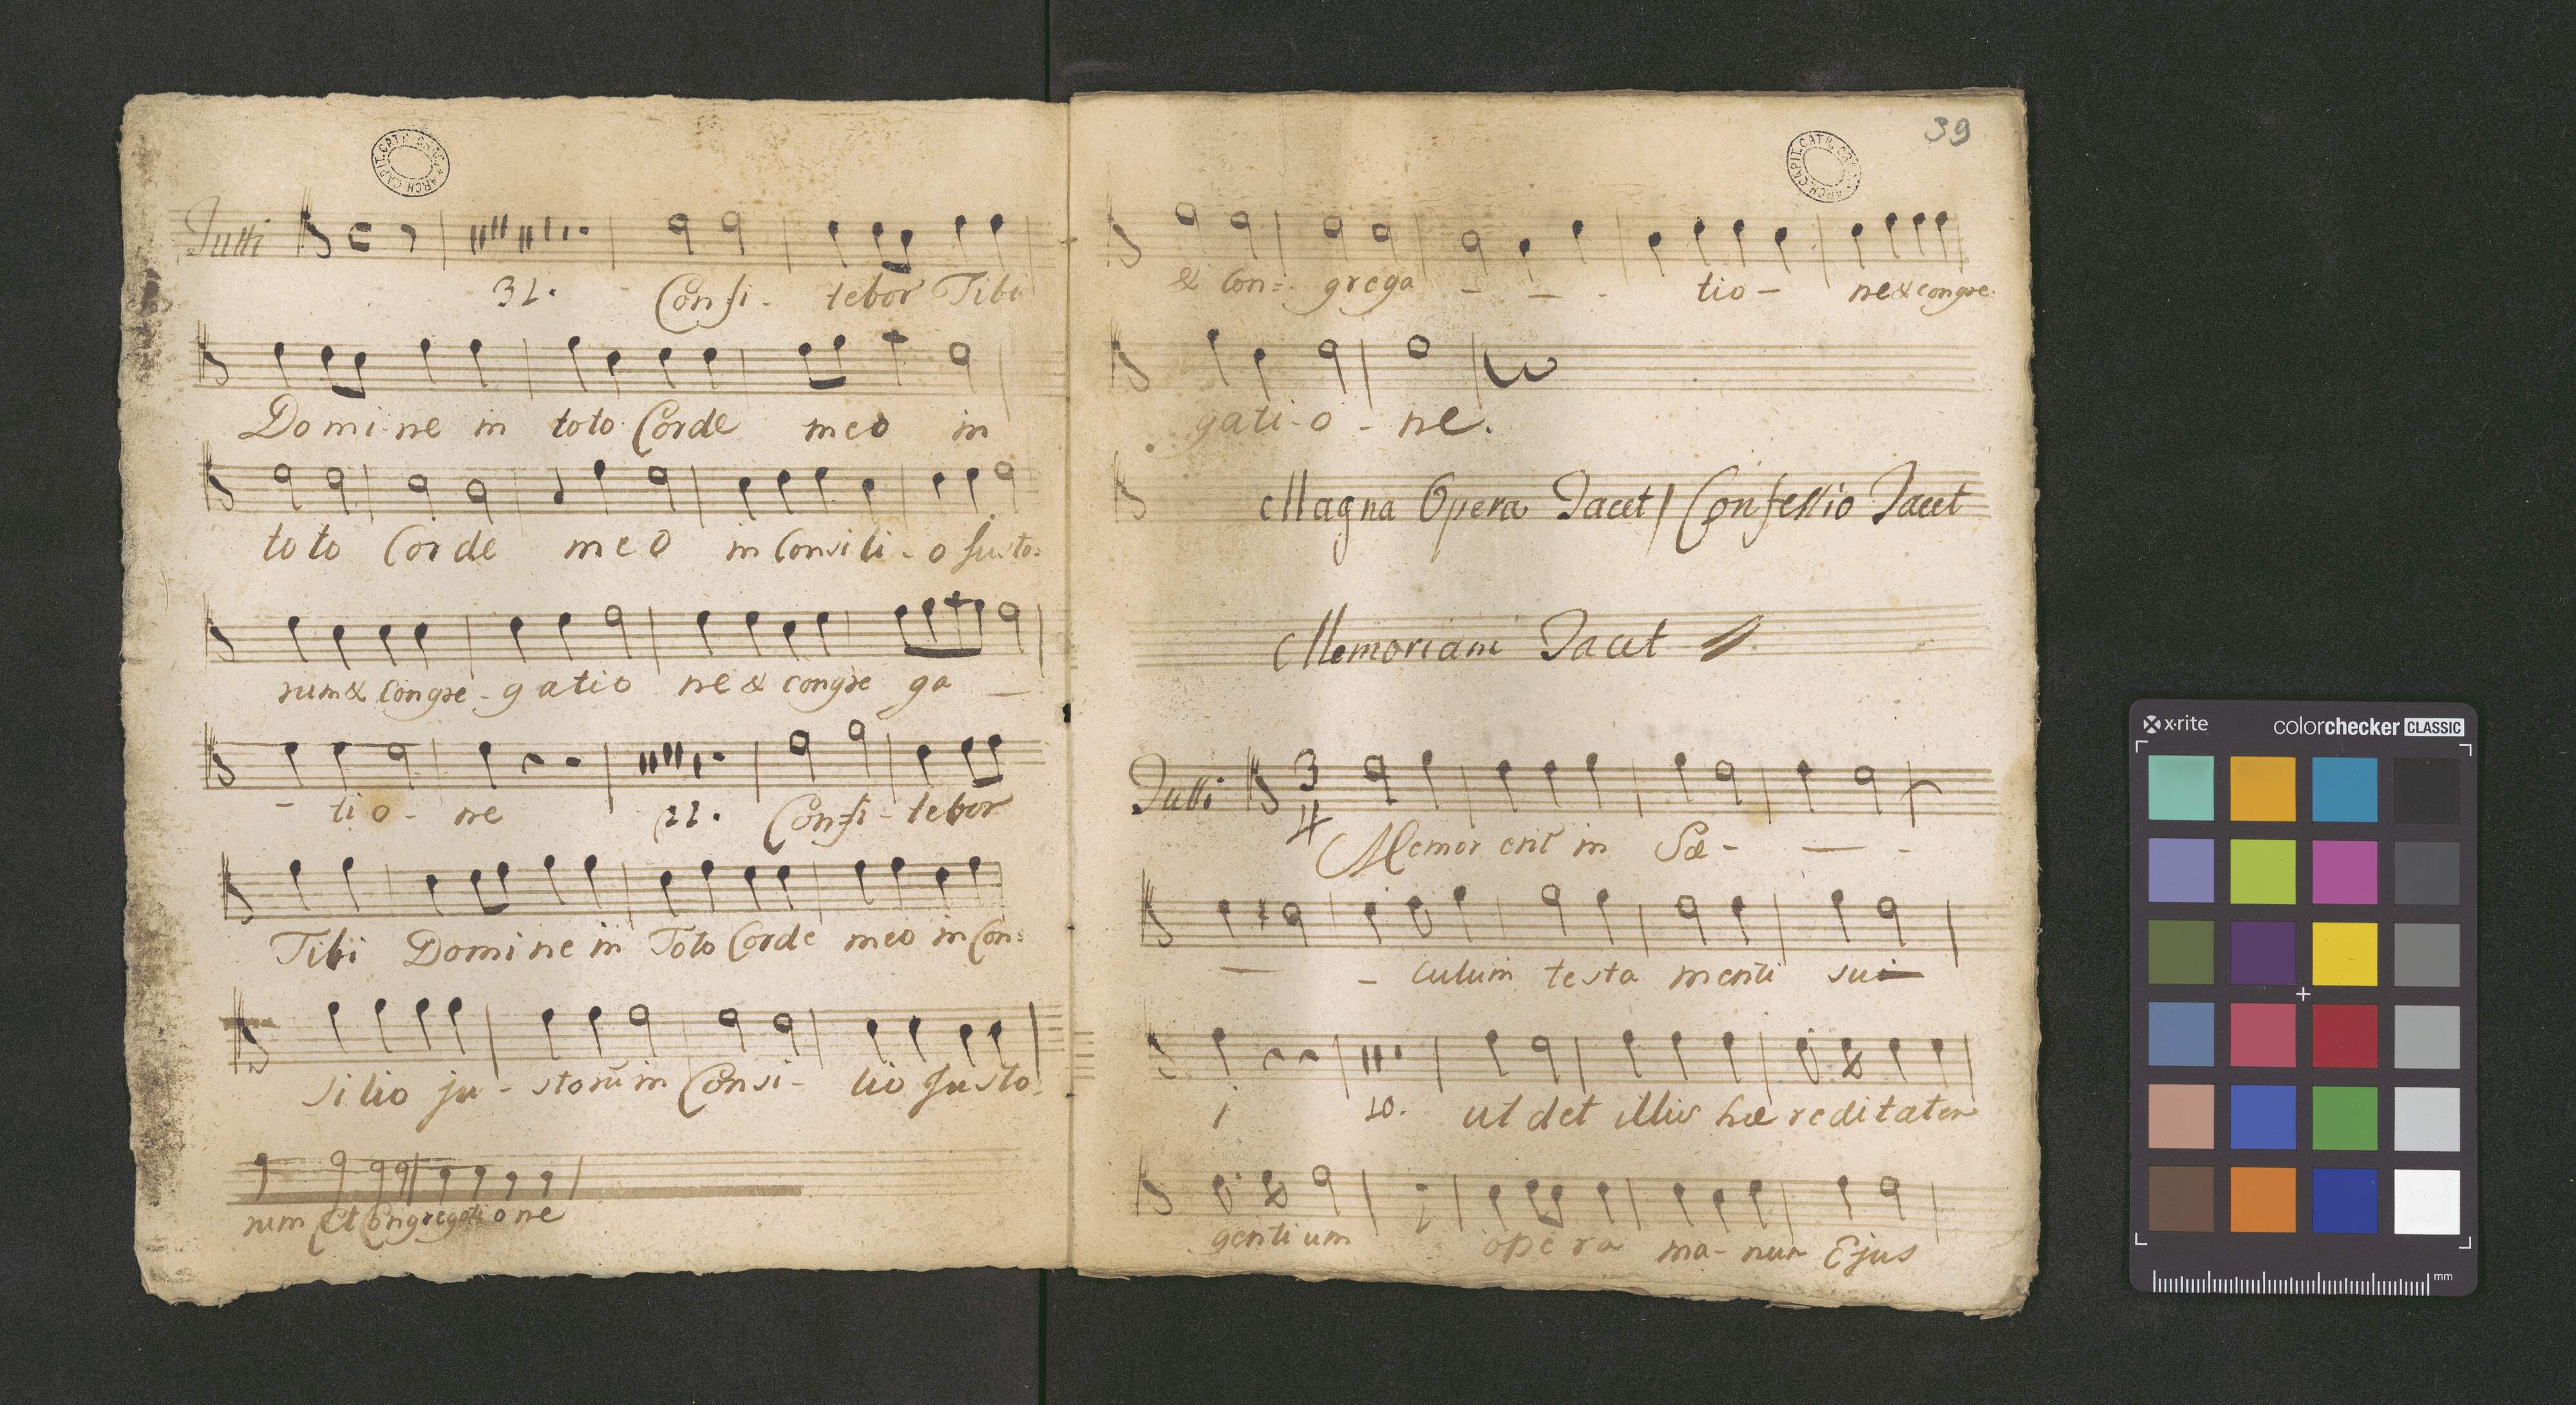 Tutti
31.
Confi- tebor Tibi
Domi-ne in toto Corde meo in
toto Corde meo in Consili-o Justo:
rum & Congre-gatio ne & congre ga -
- tio- ne 21. Confi-tebor
Tibi Domine in Toto Corde meo in Con:
silio ju-storū in Consi- lio Justo:
rum Et Congregatione
39
& Con: grega - - - tio- ne & congre
gati-o-ne.
Magna Opera Tacet / Confessio Tacet
Memoriam Tacet
Tutti 3
4
Memor erit in Sæ- - -
- - culum testa menti sui
i 10. ut det illis hæreditatem
gentium opera ma-num Ejus
x·rite
colorchecker CLASSIC
mm